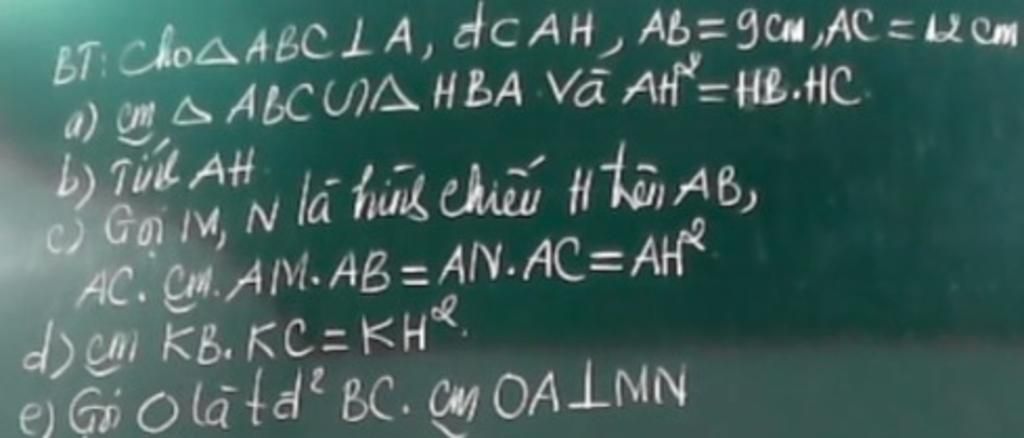 BT: Cho △ ABC ⊥ A, đc AH, AB = 9cm, AC = 12 cm
a) cm △ ABC ∽ △ HBA và AH² = HB.HC
b) Tính AH
c) Gọi M, N là hình chiếu H trên AB,
AC. cm. AM.AB = AN.AC = AH²
d) cm KB.KC = KH².
e) Gọi O là tđ² BC. cm OA ⊥ MN